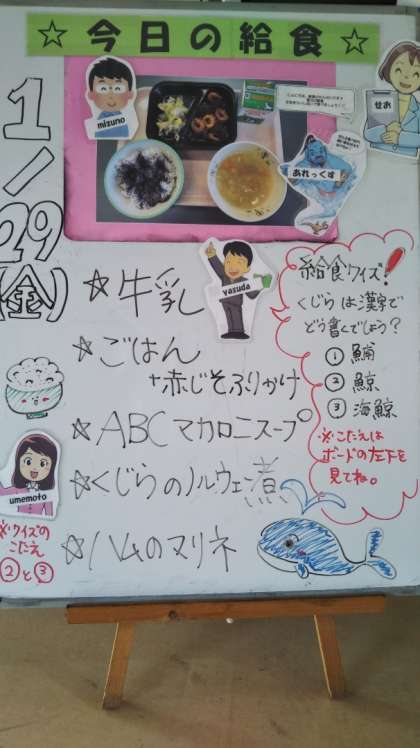 ☆今日の給食☆
1/29(金)
mizuno
せお
あれっくす
yasuda
umemoto
☆牛乳
☆ごはん
+赤じそふりかけ
☆ABCマカロニスープ
☆くじらのノルウェー煮
☆ハムのマリネ
給食クイズ!
くじらは漢字で
どう書くでしょう?
① 鯆
② 鯨
③ 海鯨
※こたえは
ボードの左下を
見てね。
※クイズの
こたえ
②と③